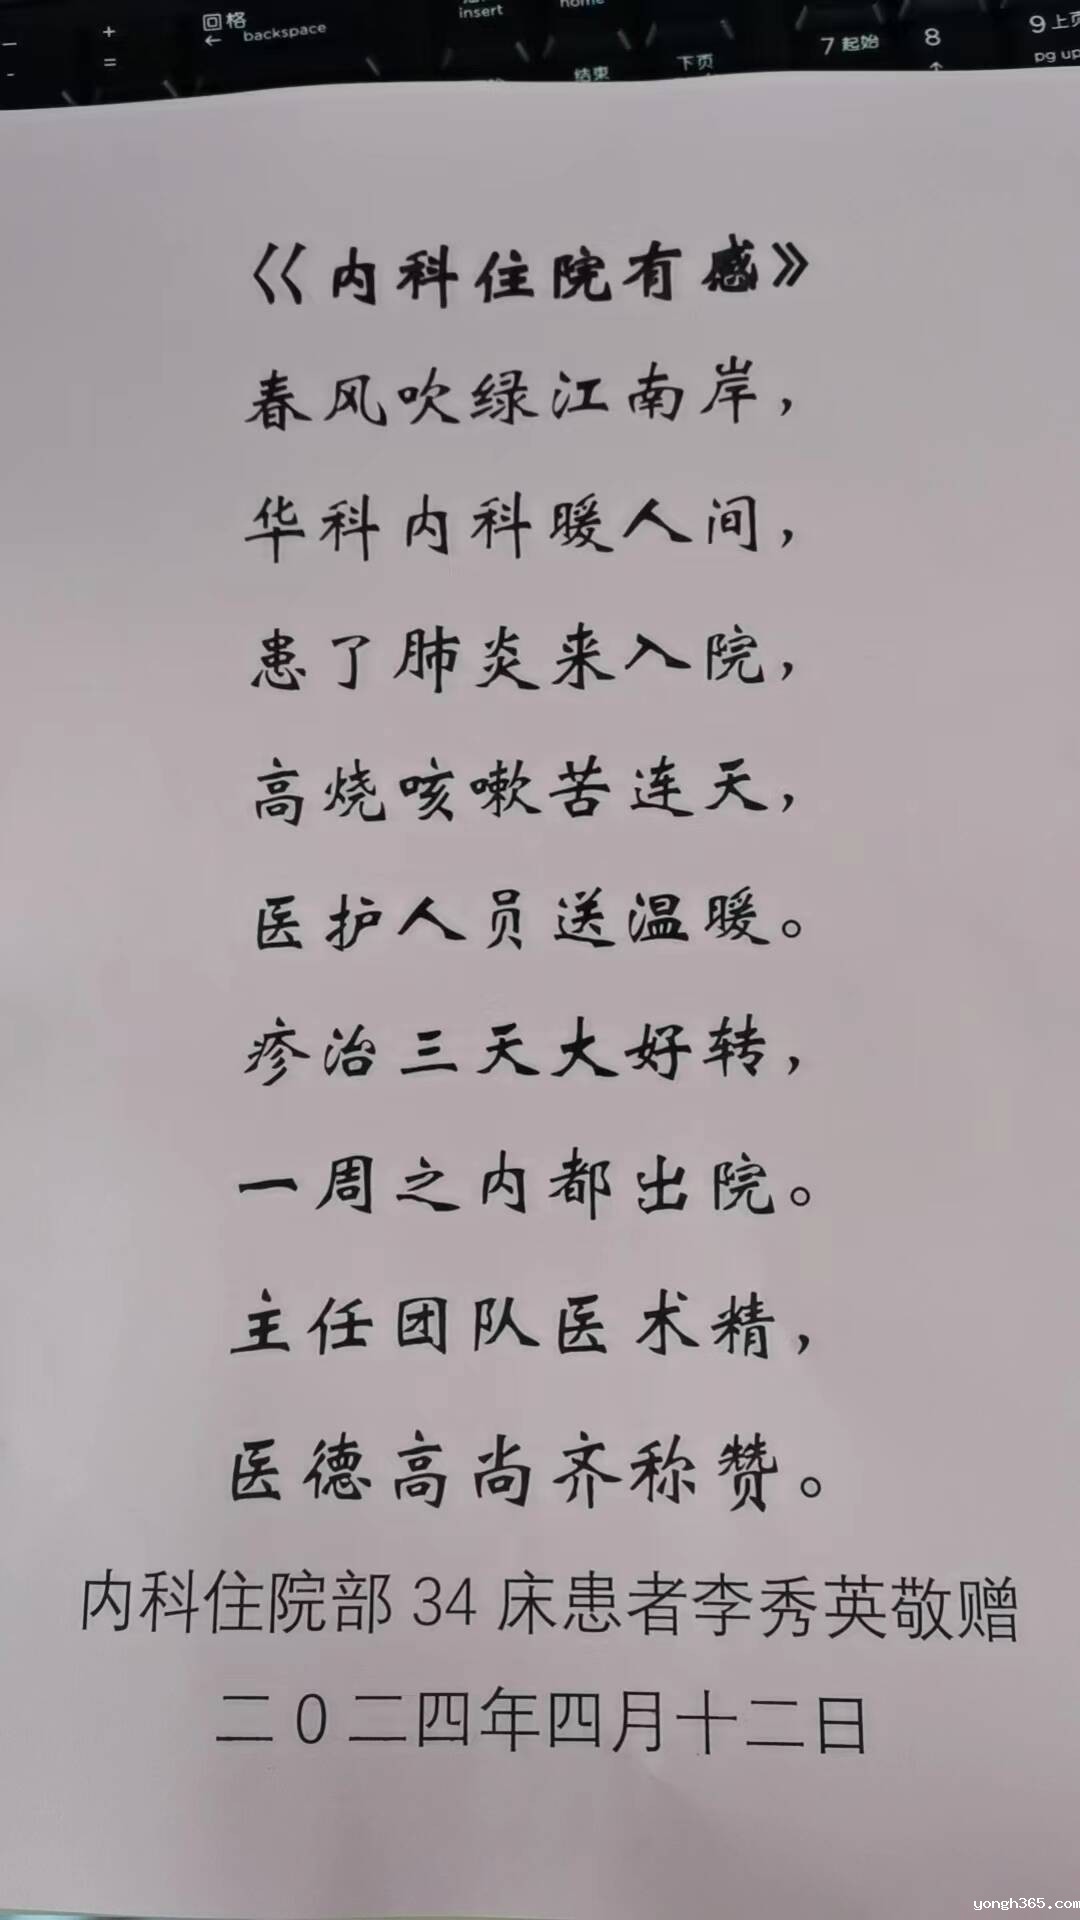 + 回格 insert home
- = ← backspace 结束 下页 7 起始 8 ↑ 9 上页 pg up
《内科住院有感》
春风吹绿江南岸，
华科内科暖人间，
患了肺炎来入院，
高烧咳嗽苦连天，
医护人员送温暖。
疹治三天大好转，
一周之内都出院。
主任团队医术精，
医德高尚齐称赞。
内科住院部 34 床患者李秀英敬赠
二0二四年四月十二日
yongh365.com